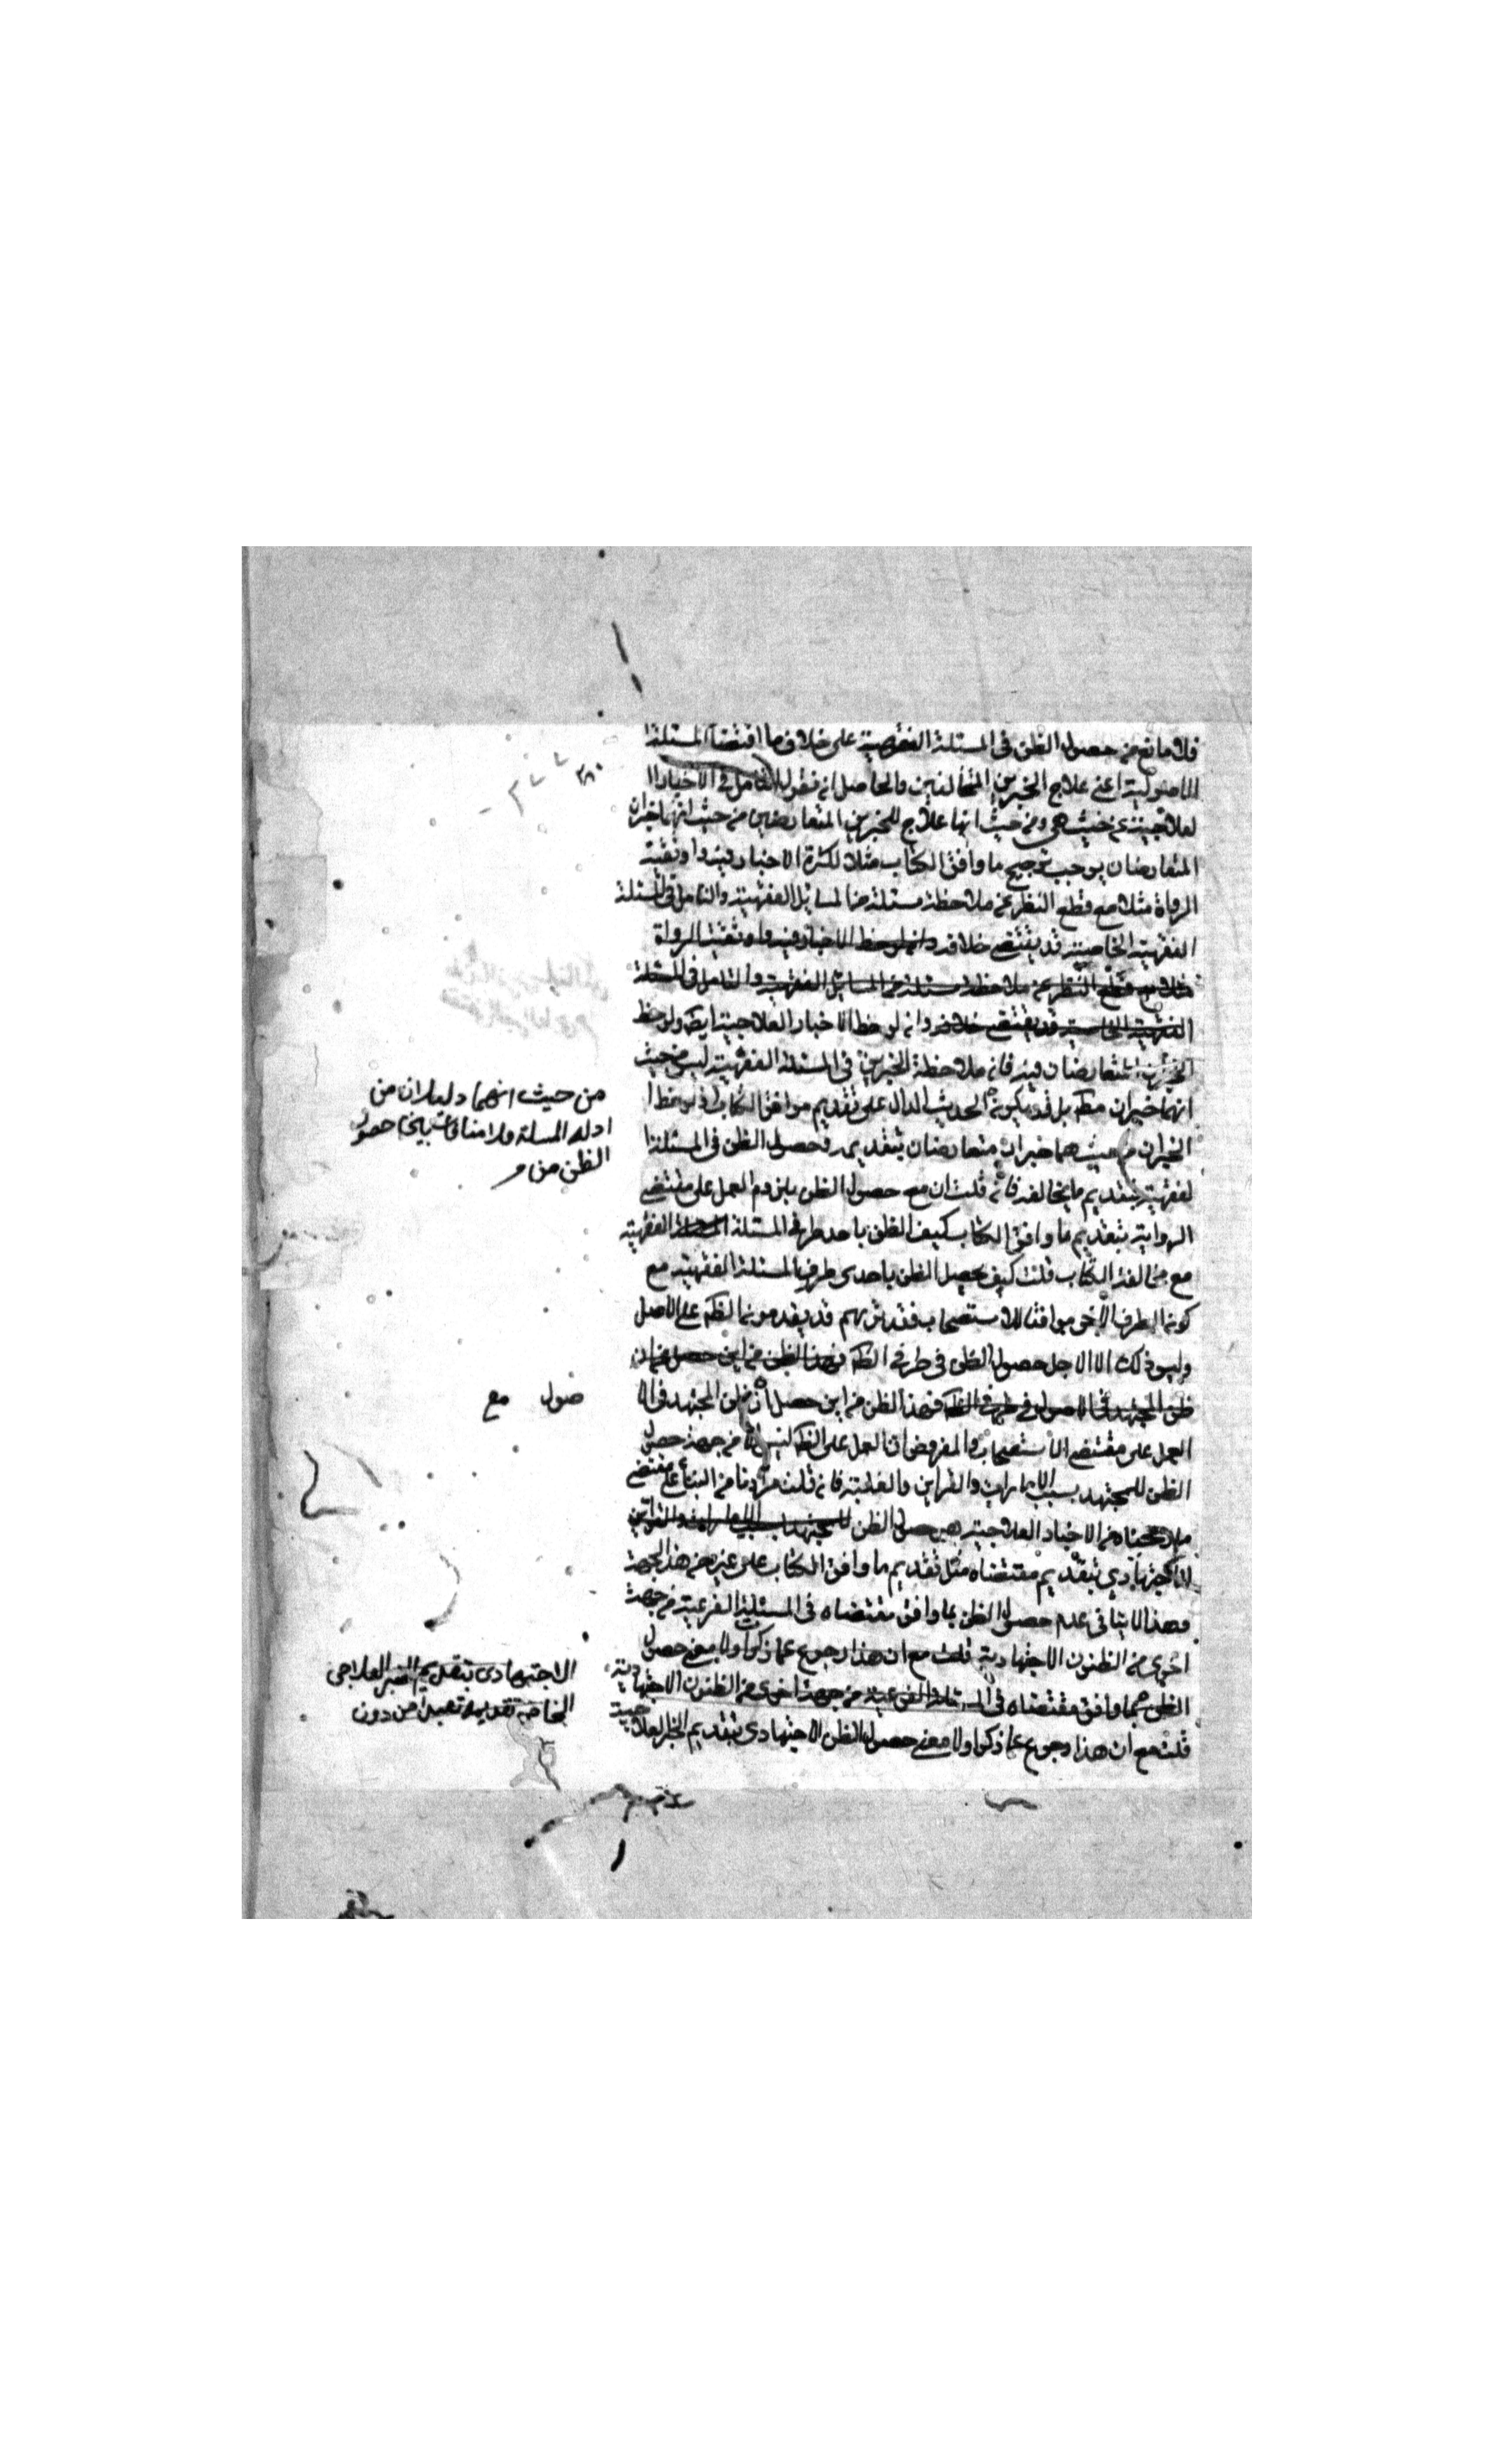 فلا مانع من حصول الظن في المسئلة الفقهية على خلاف ما اقتضا المسئلة ا
الاصولية اعني علاج الخبرين المتخالفين والحاصل انه نقول التامل في الاخبار ا
لعلاجية من حيث هي ومن حيث انها علاج للخبرين المتعارضين من حيث انهما خبران
المتعارضان يوجب ترجيح ما وافق الكتاب مثلا لكثرة الاخبار فيه واوثقية
الرواة مثلا مع قطع النظر عن ملاحظة مسئلة من المسايل الفقهية والتامل في المسئلة
الفقهية الخاصة قد يقتضي خلافه وانه لوحظ الاخبار فيه واوثقية الرواة
مثلا مع قطع النظر عن ملاحظة مسئلة من المسايل الفقهية والتامل في المسئلة
الفقهية الخاصة قد يقتضي خلافه وانه لوحظ الاخبار العلاجية ايضا ولوحظ
الخبران المتعارضان فيه فانه ملاحظة الخبرين في المسئلة الفقهية ليس من حيث
انهما خبران مط بل قد يكون الحديث الدال على تقديم موافق الكتاب اذ لوحظ ا
الخبران من حيث هما خبران متعارضان بتقديمه وحصول الظن في المسئلة ا
لفقهية بتقديم ما يخالفه فان قلت ان مع حصول الظن يلزم العمل على مقتضى
الرواية بتقديم ما وافق الكتاب كيف الظن باحد طرفي المسئلة الفقهية
مع مخالفة الكتاب قلت كيف يحصل الظن باحدى طرفي المسئلة الفقهية مع
كون الطرف الاخر موافقا للاستصحاب فقد تريهم قد يقدمون الظ على الاصل
وليس ذلك الا لاجل حصول الظن في طرف الظ فهذا الظن من اين حصل
ظن المجتهد في الاصول في طرف الظ فهذا الظن من اين حصل ان ظن المجتهد في الا
العمل على مقتضى الاستصحاب والمفروض ان العمل على الظ ليس الا من جهة حصول
الظن للمجتهد بسبب الامارات والقراين والغلبة فان قلت مرادنا من البناء على مقتضى
ملاحظتنا من الاخبار العلاجية هي حصول الظن للمجتهد بسبب الامارات والقراين
الاجتهادي بتقديم مقتضاه مثل تقديم ما وافق الكتاب على غيره من هذه الجهة
وهذا لا ينافي عدم حصول الظن بما وافق مقتضاه في المسئلة الفرعية من جهة
اخرى من الظنون الاجتهادية قلت مع ان هذا رجوع عما ذكر اولا معنى حصول
الظن بما وافق مقتضاه في المسئلة الفرعية من جهة اخرى من الظنون الاجتهادية
قلت مع ان هذا رجوع عما ذكر اولا معنى حصول الظن الاجتهادي بتقديم الخبر العلاجية
من حيث انهما دليلان من
ادله المسلة ولا منافات بين حصول
الظن من
صول مع
الاجتهادي بتقديم الخبر العلاجي
الخاصة من دون